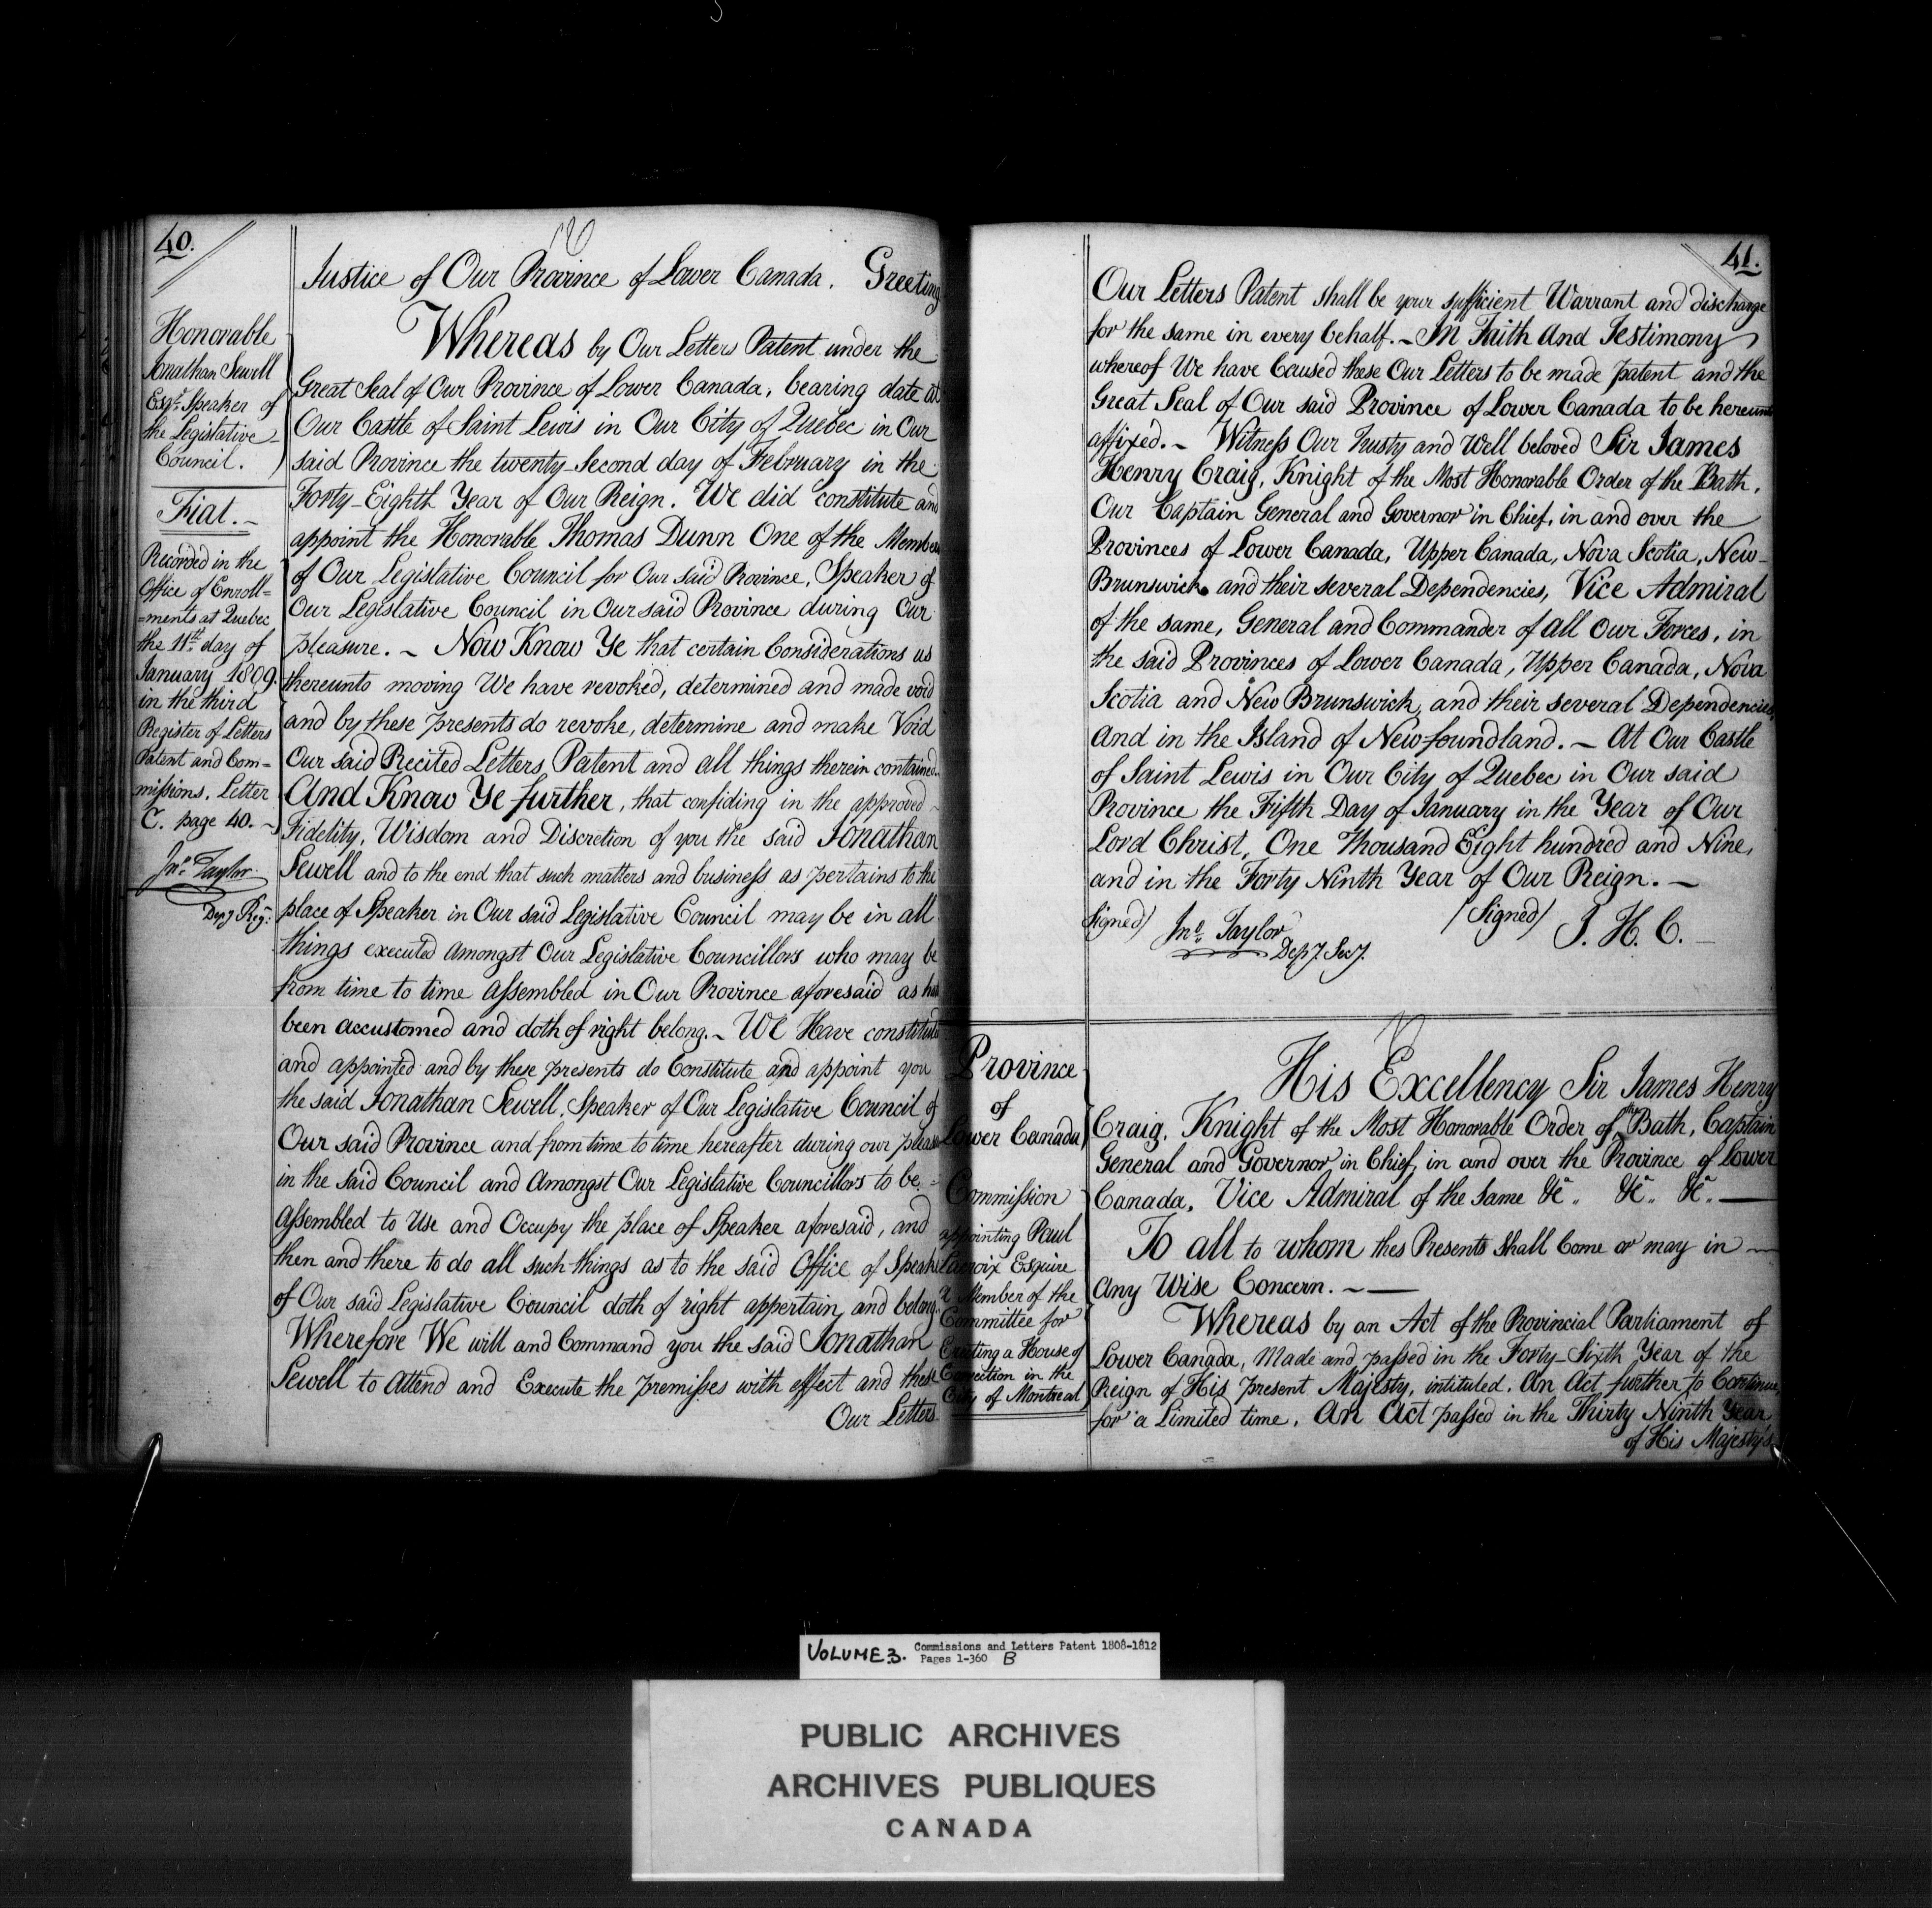 40.
Honorable
Jonathan Sewell
Esqr. Speaker of
the Legislative
Council.
Fiat.~
Recorded in the
Office of Enroll=
=ments at Quebec
the 11st. day of
January 1809.
in the third
Register of Letters
Patent and Com=
missions. Letter
C. page 40.~
Jno. Taylor
Depy. Regr.
Justice of Our Province of Lower Canada. Greeting
Whereas by Our Letters Patent under the
Great Seal of Our Province of Lower Canada, bearing date at
Our Castle of Saint Lewis in Our City of Quebec in Our
said Province the twenty-Second day of February in the
Forty-Eighth Year of Our Reign. We did constitute and
appoint the Honorable Thomas Dunn One of the Members
of Our Legislative Council for Our said Province, Speaker of
Our Legislative Council in Our said Province during Our
pleasure.~ Now Know Ye that certain Considerations us
thereunto moving We have revoked, determined and made void
and by these presents do revoke, determine and make Void
Our said Recited Letters Patent and all things therein contained.
And Know Ye further, that confiding in the approved
Fidelity, Wisdom and Discretion of you the said Jonathan
Sewell and to the end that such matters and business as pertains to the
place of Speaker in Our said Legislative Council may be in all
things executed Amongst Our Legislative Councillors who may be
from time to time Assembled in Our Province aforesaid as hath
been accustomed and doth of right belong.~ We Have constituted
and appointed and by these presents do Constitute and appoint you
the said Jonathan Sewell, Speaker of Our Legislative Council of
Our said Province and from time to time hereafter during our pleasure
in the said Council and Amongst Our Legislative Councillors to be=
Assembled to Use and Occupy the place of Speaker aforesaid, and
then and there to do all such things as to the said Office of Speaker
of Our said Legislative Council doth of right appertain and belong.
Wherefore We will and Command you the said Jonathan
Sewell to Attend and Execute the premises with effect and these
Our Letters
41.
Our Letters Patent shall be your sufficient Warrant and discharge
for the same in every behalf.~ In Faith And Testimony
whereof We have Caused these Our Letters to be made patent and the
Great Seal of Our said Province of Lower Canada to be hereunto
affixed.~ Witness Our trusty and Well beloved Sir James
Henry Craig, Knight of the Most Honorable Order of the Bath,
Our Captain General and Governor in Chief, in and over the
Provinces of Lower Canada, Upper Canada, Nova Scotia, New-
Brunswick and their several Dependencies, Vice Admiral
of the same, General and Commander of all Our Forces, in
the said Provinces of Lower Canada, Upper Canada, Nova
Scotia and New Brunswick, and their several Dependencies,
And in the Island of New-foundland.~ At Our Castle
of Saint Lewis in Our City of Quebec in Our said
Province the Fifth Day of January in the Year of Our
Lord Christ, One Thousand Eight hundred and Nine,
and in the Forty Ninth Year of Our Reign.~
Signed) Jno. Taylor (Signed) J. H. C.
Depy. Secy.
Province
of
Lower Canada
Commission
appointing Paul
Lacroix Esquire
a Member of the
Committee for
Erecting a House of
Correction in the
City of Montreal
His Excellency Sir James Henry
Craig, Knight of the Most Honorable Order of the Bath, Captain
General and Governor in Chief, in and over the Province of Lower
Canada, Vice Admiral of the Same &c. &c. &c.
To all to whom thes Presents Shall Come or may in
Any Wise Concern.~
Whereas by an Act of the Provincial Parliament of
Lower Canada, Made and passed in the Forty-Sixth Year of the
Reign of His present Majesty, intituled. An Act further to Continue,
for a Limited time, An Act passed in the Thirty Ninth Year
of His Majesty's
VOLUME 3. Commissions and Letters Patent 1808-1812
Pages 1-360 B
PUBLIC ARCHIVES
ARCHIVES PUBLIQUES
CANADA